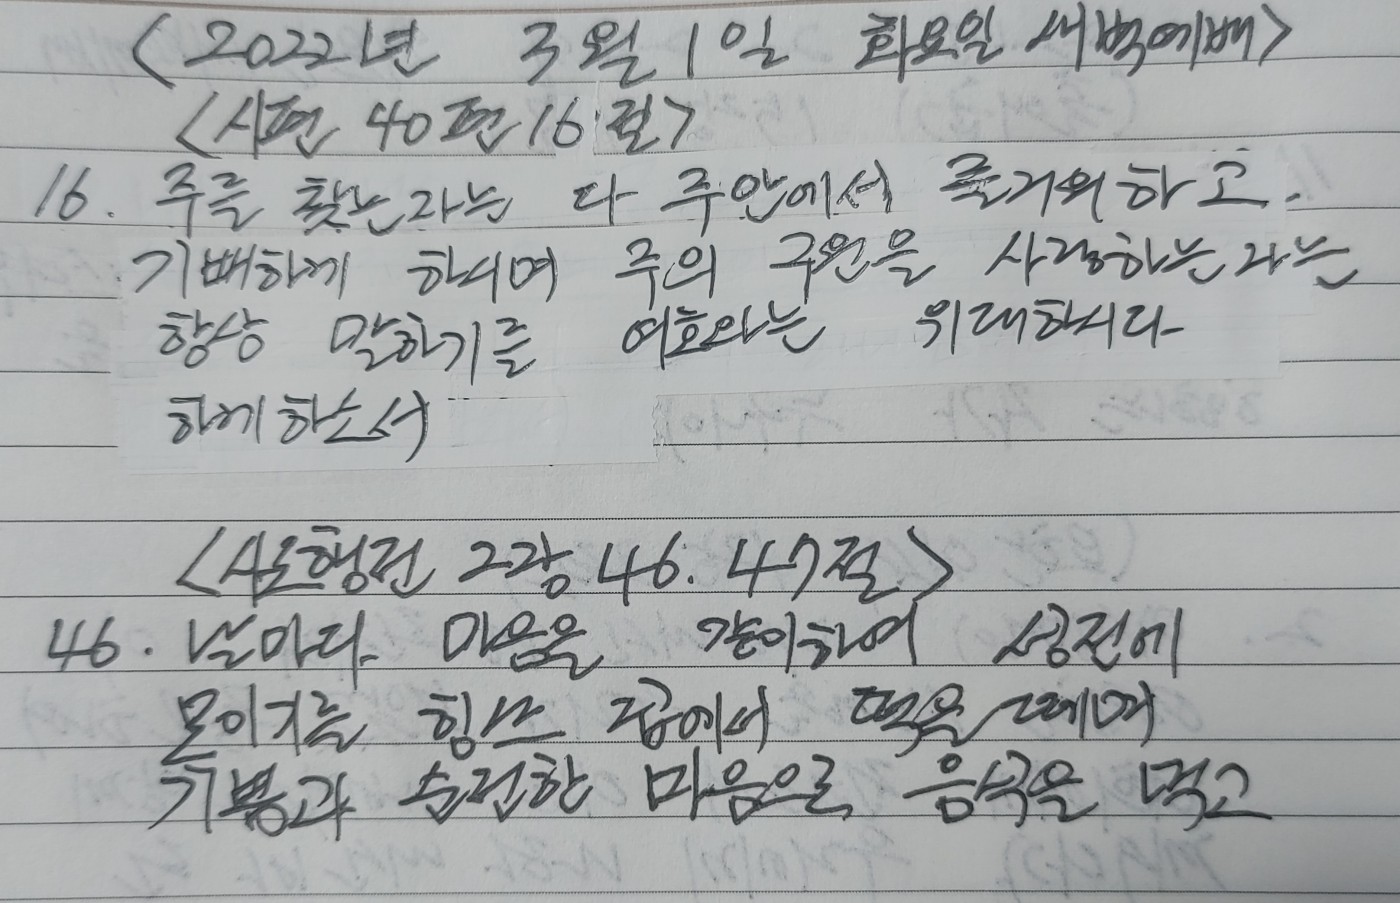 <2022년 3월 1일 화요일 새벽예배>
<시편 40편 16절>
16. 주를 찾는자는 다 주안에서 즐거워하고.
기뻐하게 하시며 주의 구원을 사랑하는자는
항상 말하기를 여호와는 위대하시다
하게하소서
<사도행전 2장 46. 47절>
46. 날마다 마음을 같이하여 성전에
모이기를 힘쓰 집에서 떡을 떼며
기쁨과 순전한 마음으로 음식을 먹고